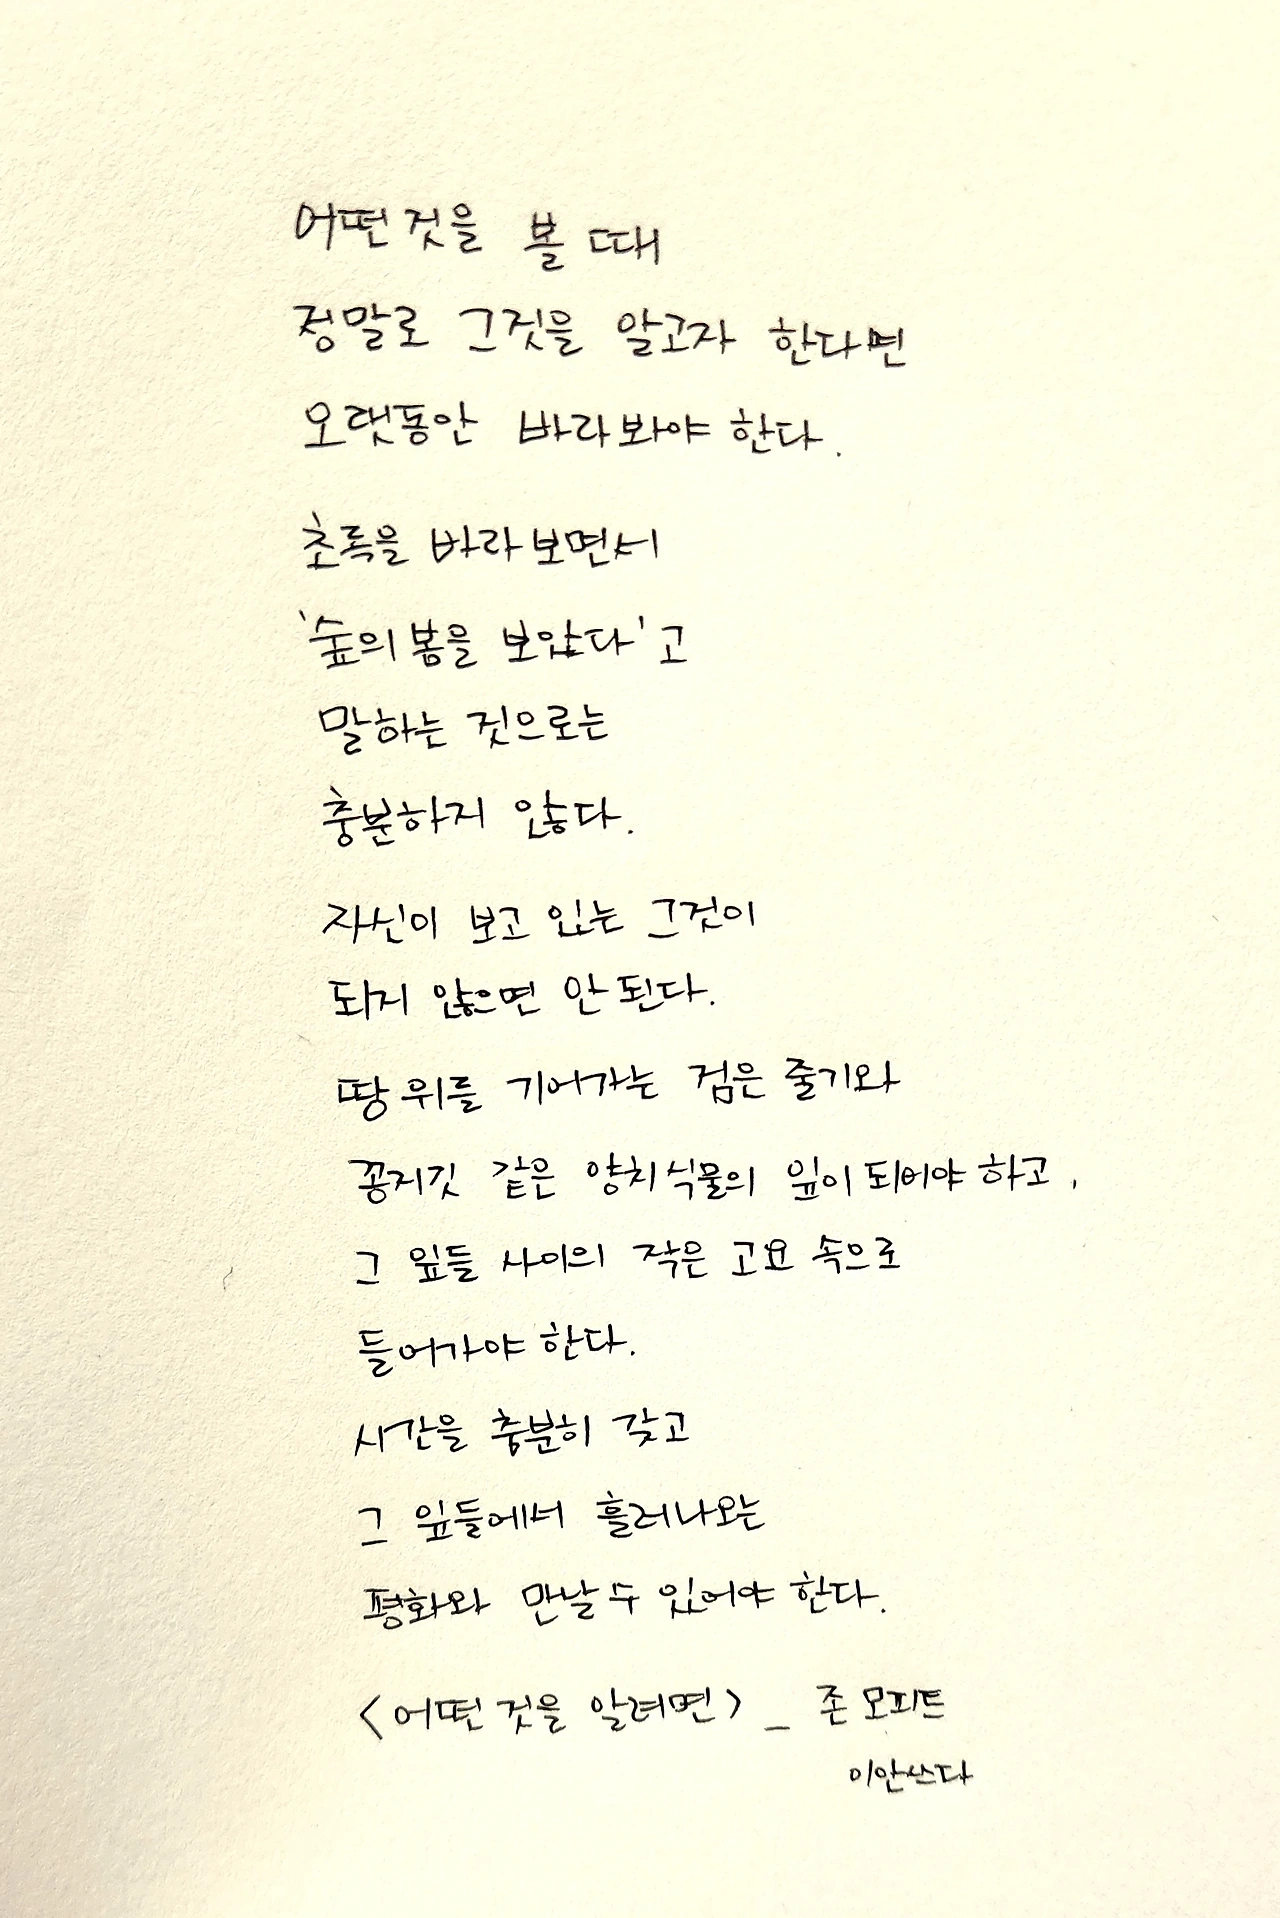 어떤 것을 볼 때
정말로 그것을 알고자 한다면
오랫동안 바라봐야 한다.
초록을 바라보면서
'숲의 봄을 보았다'고
말하는 것으로는
충분하지 않다.
자신이 보고 있는 그것이
되지 않으면 안 된다.
땅 위를 기어가는 검은 줄기와
꽁지깃 같은 양치식물의 잎이 되어야 하고,
그 잎들 사이의 작은 고요 속으로
들어가야 한다.
시간을 충분히 갖고
그 잎들에서 흘러나오는
평화와 만날 수 있어야 한다.
<어떤 것을 알려면> _ 존 모피트
이안쓰다